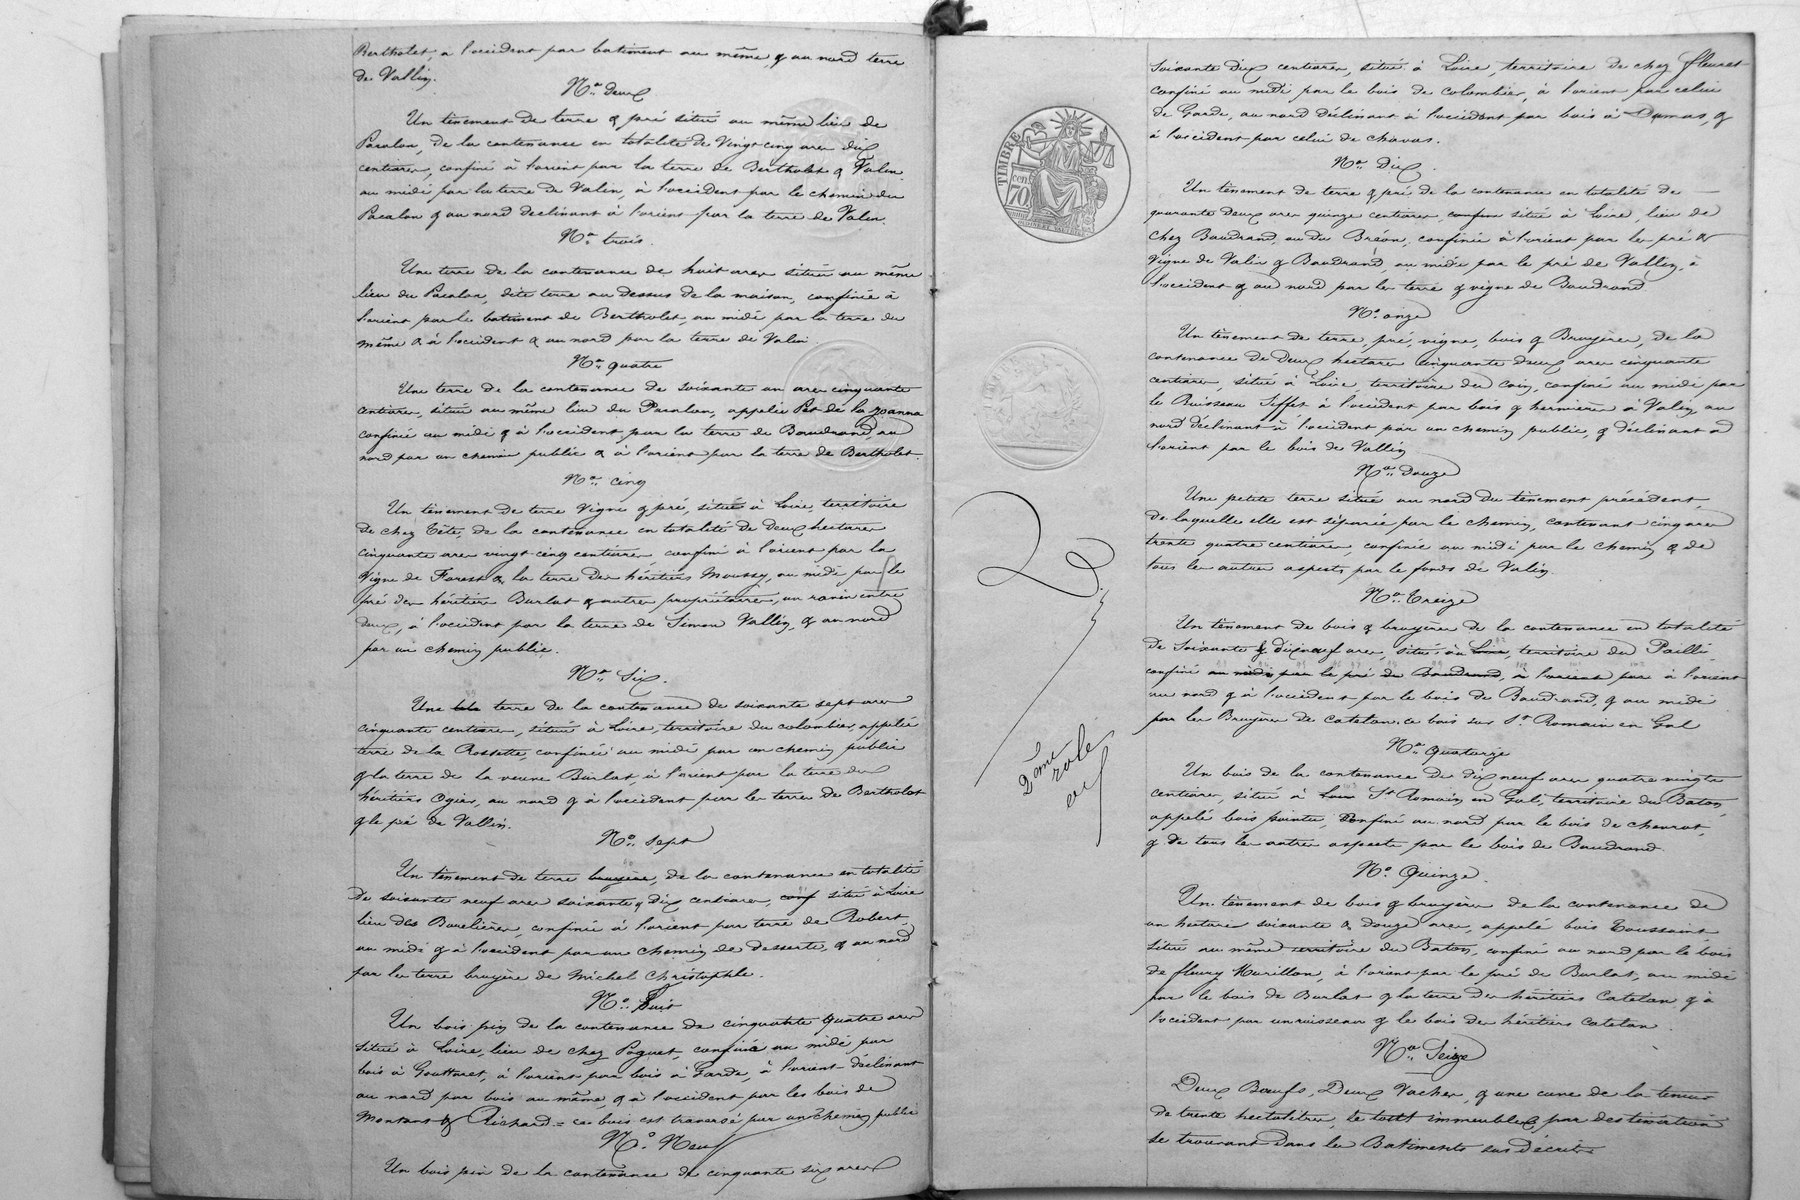 Bertholet, à l'occident par batiment au même, & au nord terre
de Vallin.
No. Deux
Un tènement de terre & pré situé au même lieu de
Pacalon, de la contenance en totalité de Vingt cinq ares dix
centiares, confiné à l'orient par la terre de Bertholet & Valin,
au midi par la terre de Valin, à l'occident par le chemin du
Pacalon & au nord declinant à l'orient par la terre de Valin.
No. trois.
Une terre de la contenance de huit ares située au même
lieu du Pacalon, dite terre au dessus de la maison, confinée à
l'orient par le batiment de Bertholet, au midi par la terre du
même & à l'occident & au nord par la terre de Valin
No. quatre
Une terre de la contenance de soixante un ares cinquante
centiares, située au même lieu du Pacalon, appelée Pet de la
confinée au midi & à l'occident par la terre de Baudrand, au
nord par un chemin public & à l'orient par la terre de Bertholet.
No. cinq
Un tènement de terre Vigne & pré, situé à Loire, territoire
de chez Tête, de la contenance en totalité de deux hectares
cinquante ares vingt cinq centiares confiné à l'orient par la
Vigne de Forest & la terre des héritiers Moussy, au midi par le
pré des héritiers Burlat & autres propriétaires, un ravin entre
deux, à l'occident par la terre de Simon Vallin, & au nord
par un chemin public.
No. Six.
Une terre de la contenance de soixante sept ares
cinquante centiares, située à Loire, territoire du colombier, appelée
terre de la Rossette, confinée au midi par un chemin public
& la terre de la veuve Burlat, à l'orient par la terre des
héritiers Ogier, au nord & à l'occident par les terres de Bertholet
& le pré de Vallin.
No. sept
Un tènement de terre bruyère, de la contenance en totalité
de soixante neuf ares soixante & dix centiares, conf situé à Loire
lieu des Burelières, confiné à l'orient par terre de Robert,
au midi & à l'occident par un chemin de desserte, & au nord
par les terre bruyère de Michel Christophle.
No. huit
Un bois pin de la contenance de cinquante quatre ares
situé à Loire, lieu de chez Poguet, confiné au midi par
bois à Gouttaret, à l'orient par bois à Garde, à l'orient déclinant
au nord par bois au même, & à l'occident par les bois de
Montant & Richard = ce bois est traversé par un chemin public
No. Neuf
Un bois pin de la contenance de cinquante six ares
soixante dix centiares, situé à Loire, territoire de chez fleuret
confiné au midi par le bois de colombier, à l'orient par celui
de Garde, au nord déclinant à l'occident par bois à Dumas, &
à l'occident par celui de chavas.
No. Dix.
Un tènement de terre & pré de la contenance en totalité de
quarante deux ares quinze centiares confine situé à Loire, lieu de
chez Baudrand ou du Bréon, confiné à l'orient par les pré &
vigne de Valin & Baudrand, au midi par le pré de Vallin, à
l'occident & au nord par les terre & vigne de Baudrand
No. onze
Un tènement de terre, pré, vigne, bois & Bruyères, de la
contenance de Deux hectares cinquante deux ares cinquante
centiares, situé à Loire, territoire du Coin, confiné au midi par
le Ruisseau Siffet à l'occident par bois & hermières à Valin au
nord déclinant à l'occident par un chemin public, & déclinant à
l'orient par le bois de Vallin
No. Douze
Une petite terre située au nord du tènement précédent,
de laquelle elle est séparée par le chemin, contenant cinq ares
trente quatre centiares, confinée au midi par le chemin & de
tous les autres aspects par le fonds de Valin.
No. Treize
Un tènement de bois & bruyères de la contenance en totalité
de Soixante & dix neuf ares, situé à Loire, territoire du Pailli,
confiné au midi par le pré de Baudrand, à l'orient par à l'orient
au nord & à l'occident par le bois de Baudrand, & au midi
par les Bruyères de Catelan. ce bois sur St. Romain en Gal
No. Quatorze
Un bois de la contenance de dix neuf ares quatre vingts
centiares, situé à Loire St Romain en Gal, territoire du Baton,
appelé bois pointu, Confiné au nord par le bois de chevrot,
& de tous les autres aspects par le bois de Baudrand.
No. Quinze.
Un tènement de bois & bruyères de la contenance de
un hectare soixante & douze ares, appelé bois Toussaint
situé au même territoire du Baton, confiné au nord par le bois
de fleury Murillon, à l'orient par le pré de Burlat, au midi
par le bois de Burlat & la terre des héritiers Catelan & à
l'occident par un ruisseau & le bois des héritiers Catelan.
No. Seize
Deux Boeufs, Deux Vaches, & une cuve de la teneur
de trente hectolitres, le tout immeubles par destination
se trouvant dans les Batiments sus décrits
TIMBRE
cen.
70
2e
2ème
role